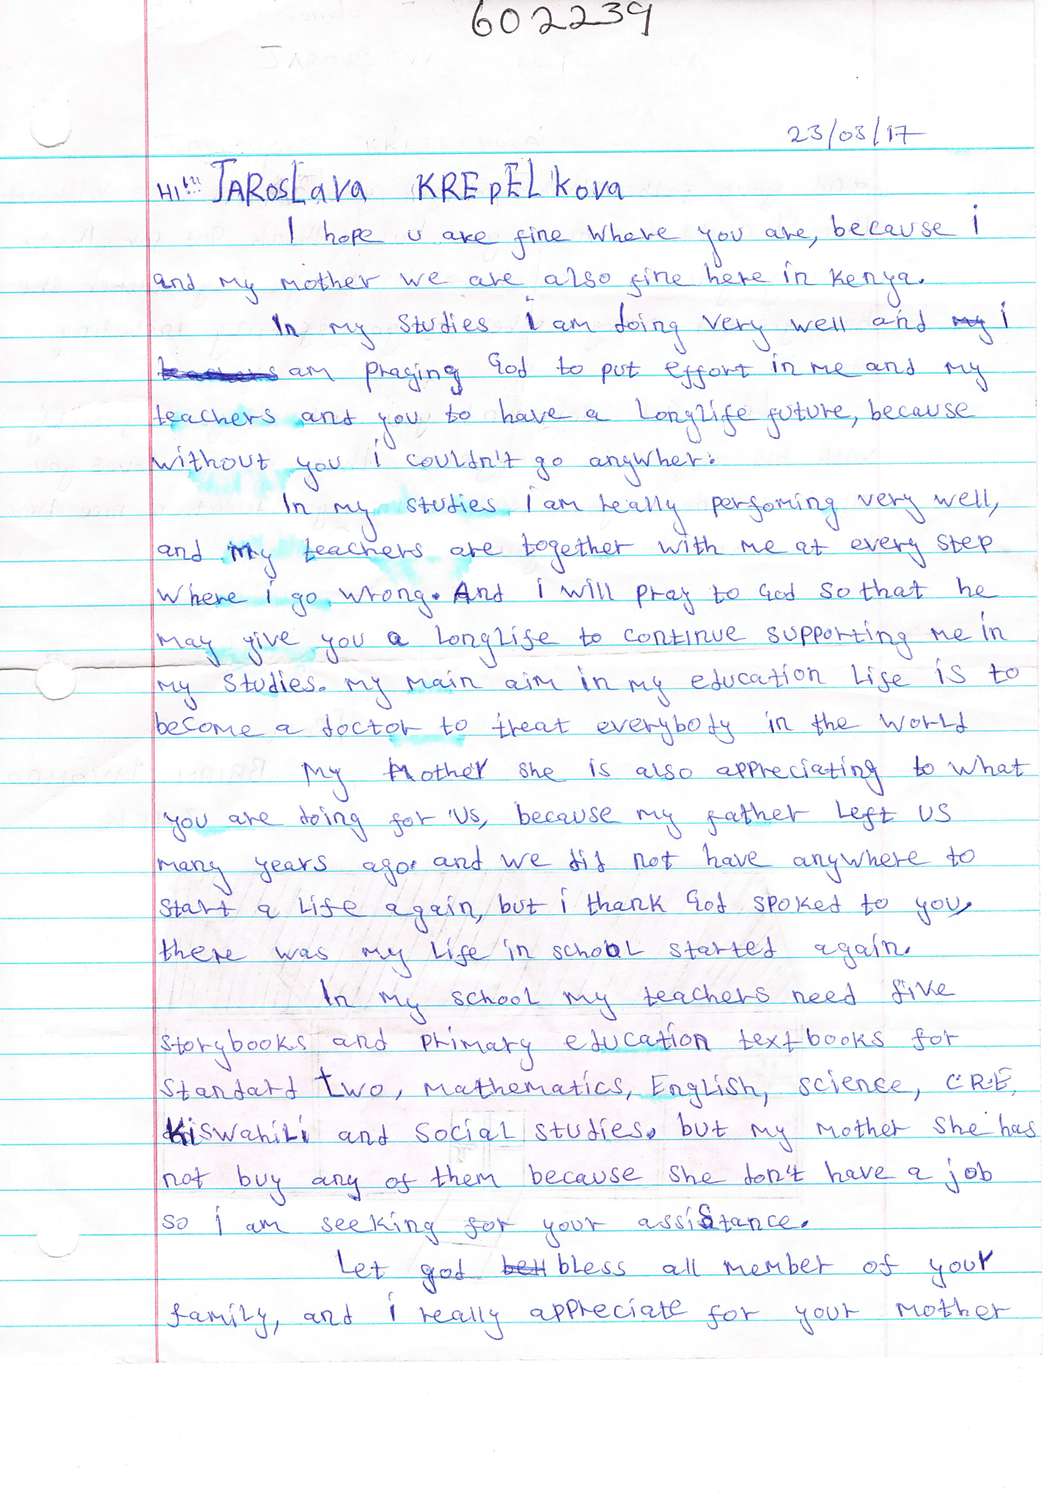 602239
23/03/17
Hi!!! JAROSLAVA KREPELKova
I hope u are fine where you are, because i
and my mother we are also fine here in Kenya.
In my studies i am doing very well and my i
teachers am praying God to put effort in me and my
teachers and you to have a longlife future, because
without you i couldn't go anywher.
In my studies i am really perfoming very well,
and my teachers are together with me at every step
where i go wrong. And i will pray to God so that he
may give you a longlife to continue supporting me in
my studies. my main aim in my education life is to
become a doctor to treat everybody in the world
My Mother she is also appreciating to what
you are doing for us, because my father left us
many years ago. and we did not have anywhere to
start a life again, but i thank God spoked to you,
there was my life in school started again.
In my school my teachers need five
storybooks and primary education textbooks for
standard two, mathematics, English, science, C.R.E,
Kiswahili and social studies. but my mother she has
not buy any of them because she don't have a job
so i am seeking for your assistance.
Let god bless all member of your
family, and i really appreciate for your mother